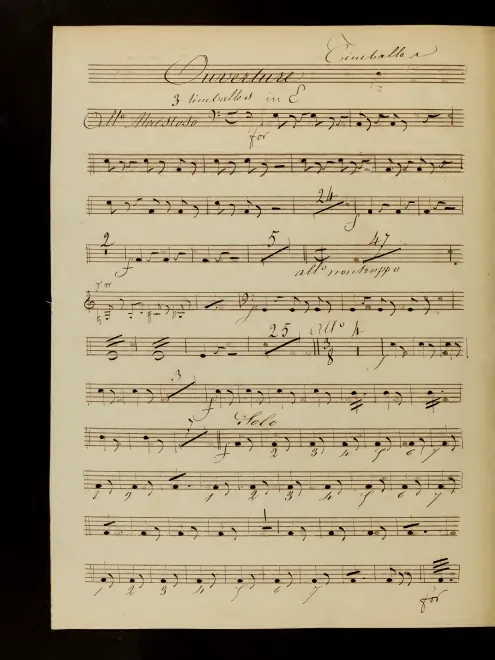 Timballes
Ouverture
3 timballes in E
All° Maestoso
for
24
f
2 f 5 47
all° non troppo
25 All° 3 8
3 f
7 Solo
f 2 3 4 5 6 7
1 2 1 2 3 4 5 6 7
1
1 2 3 4 5 6 7
for